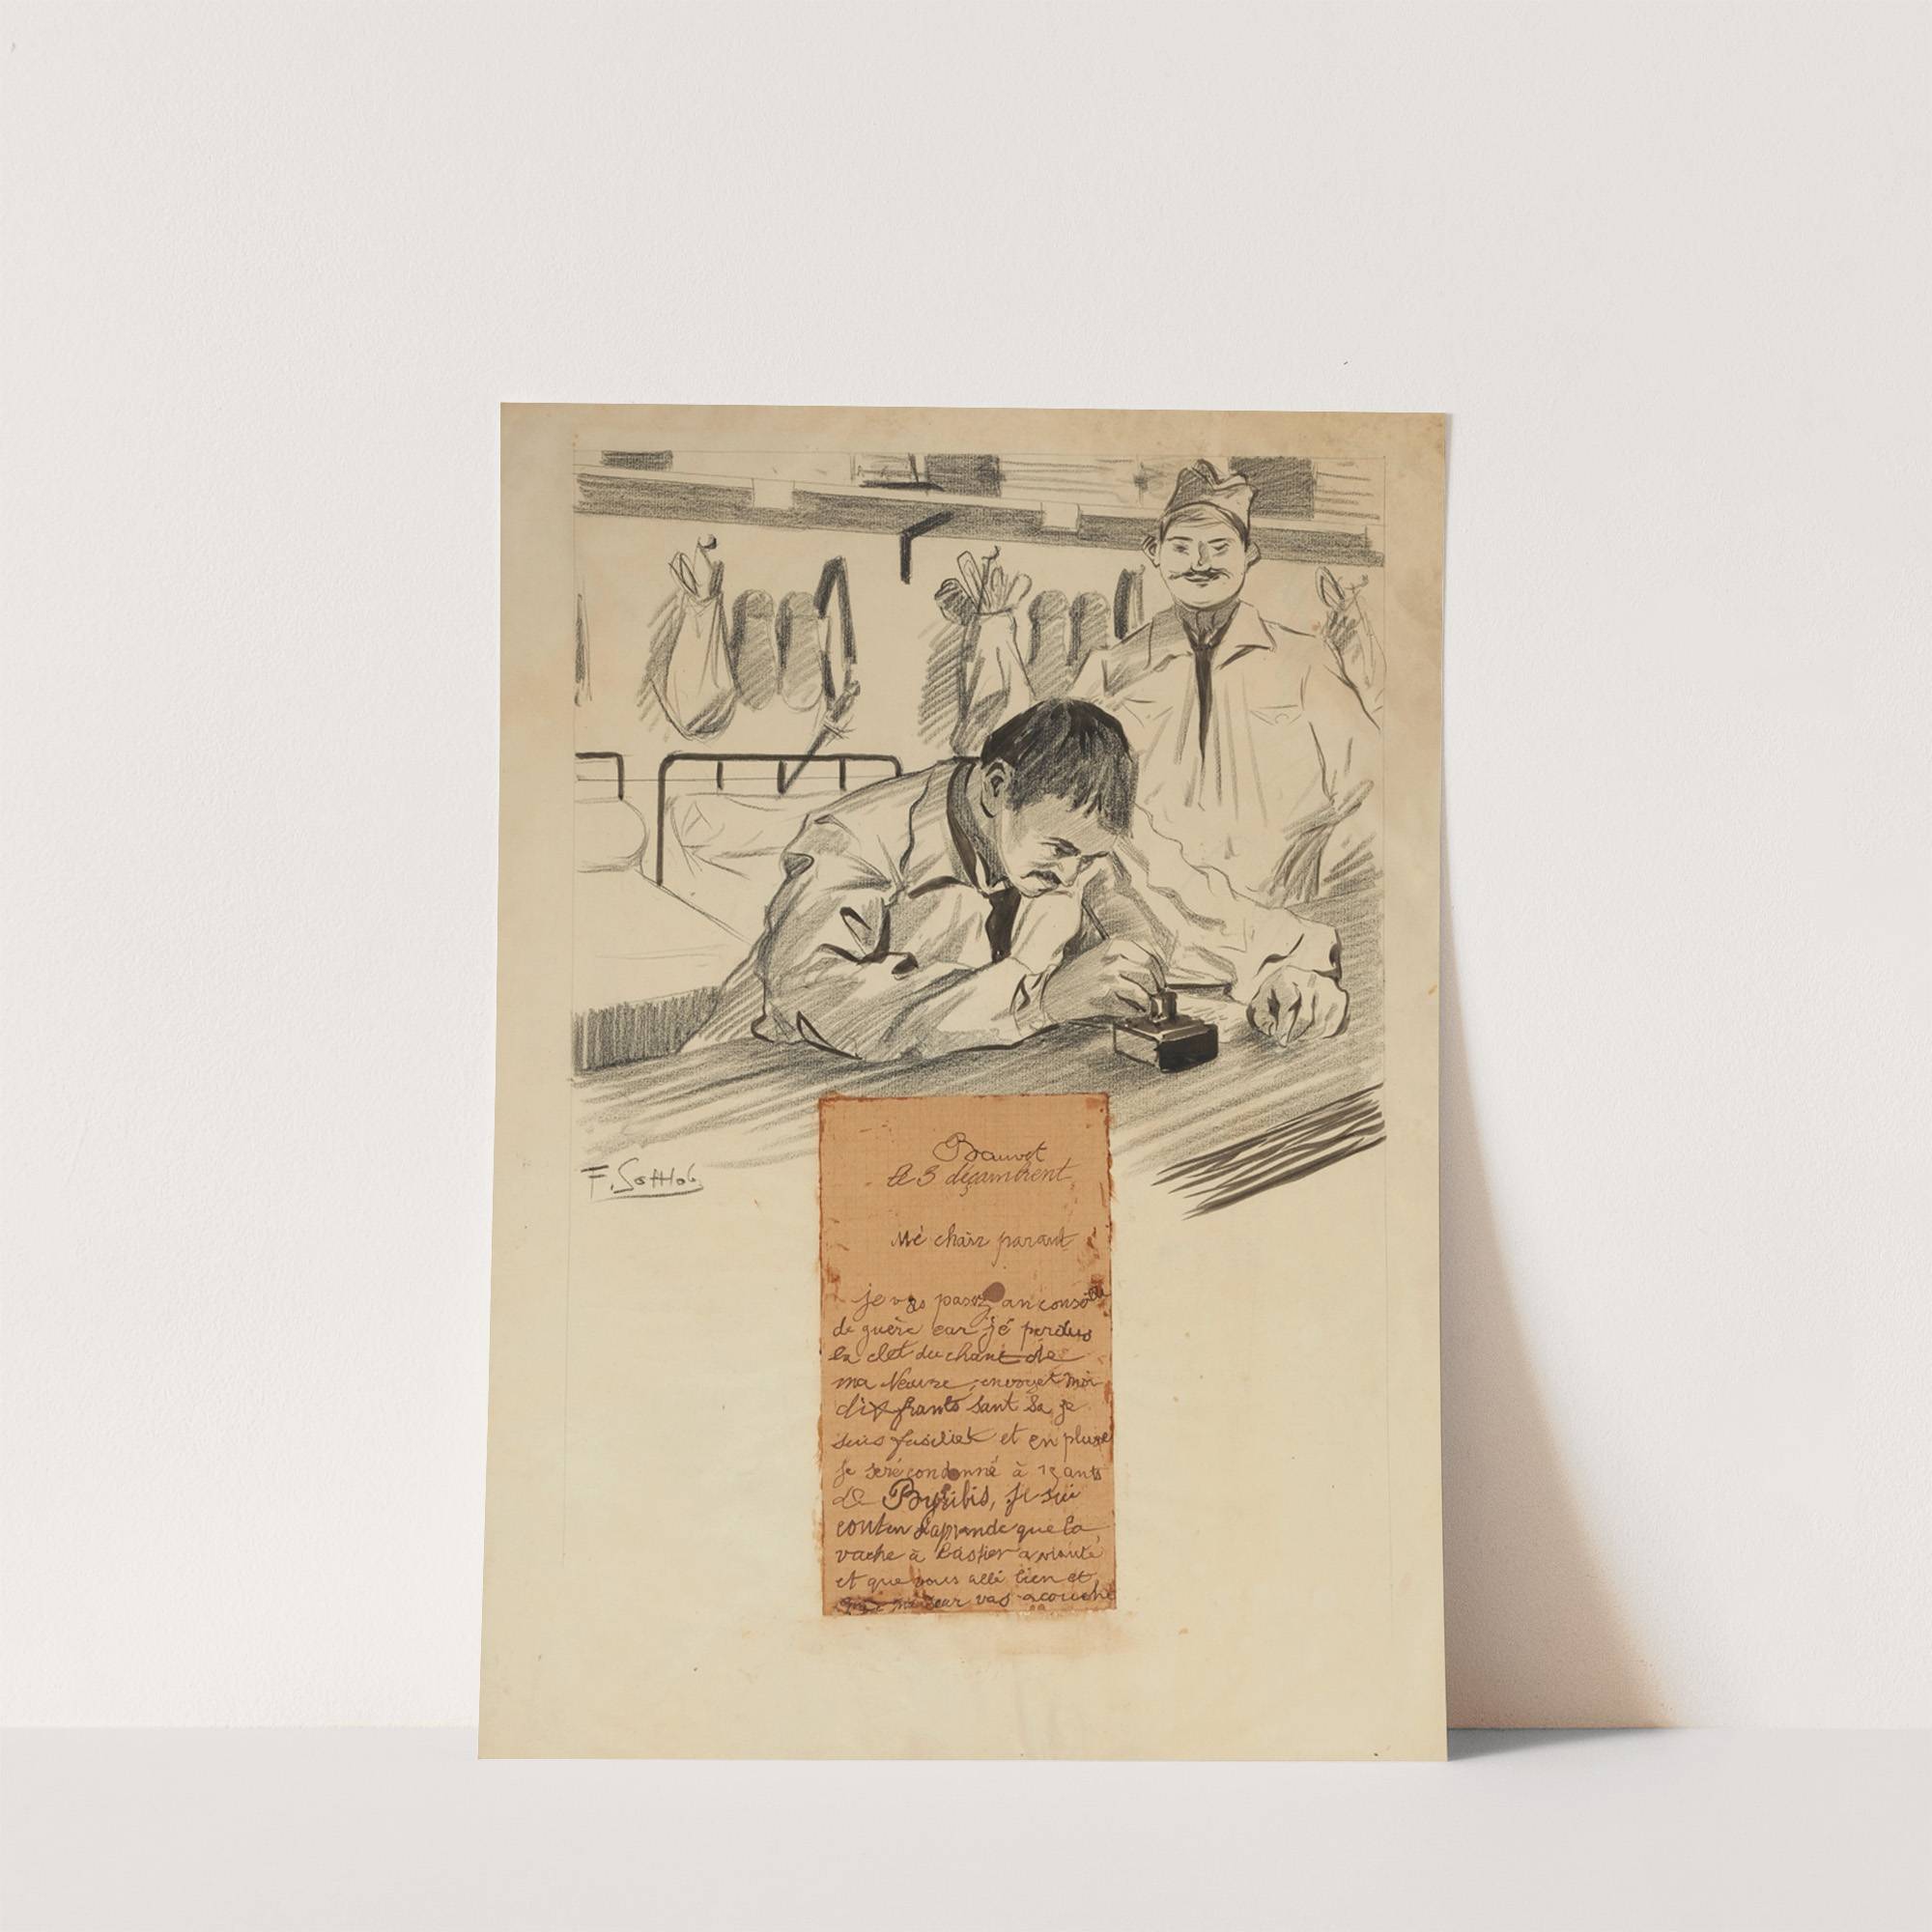 F. Gottlob
Bauvet
le 3 déçambrent
Mé chair parant
je vas passez an conseille
de guère car jé perdus
la clet du chant de
ma Neuvre, envoyet moi
dix frants sant sa je
suis fusiliet et en pluse
je seré condonné à 15 ants
de Byribis, je sui
conten d'aprande que la
vache à
et que vous allé bien et
que ma seur vas acouché